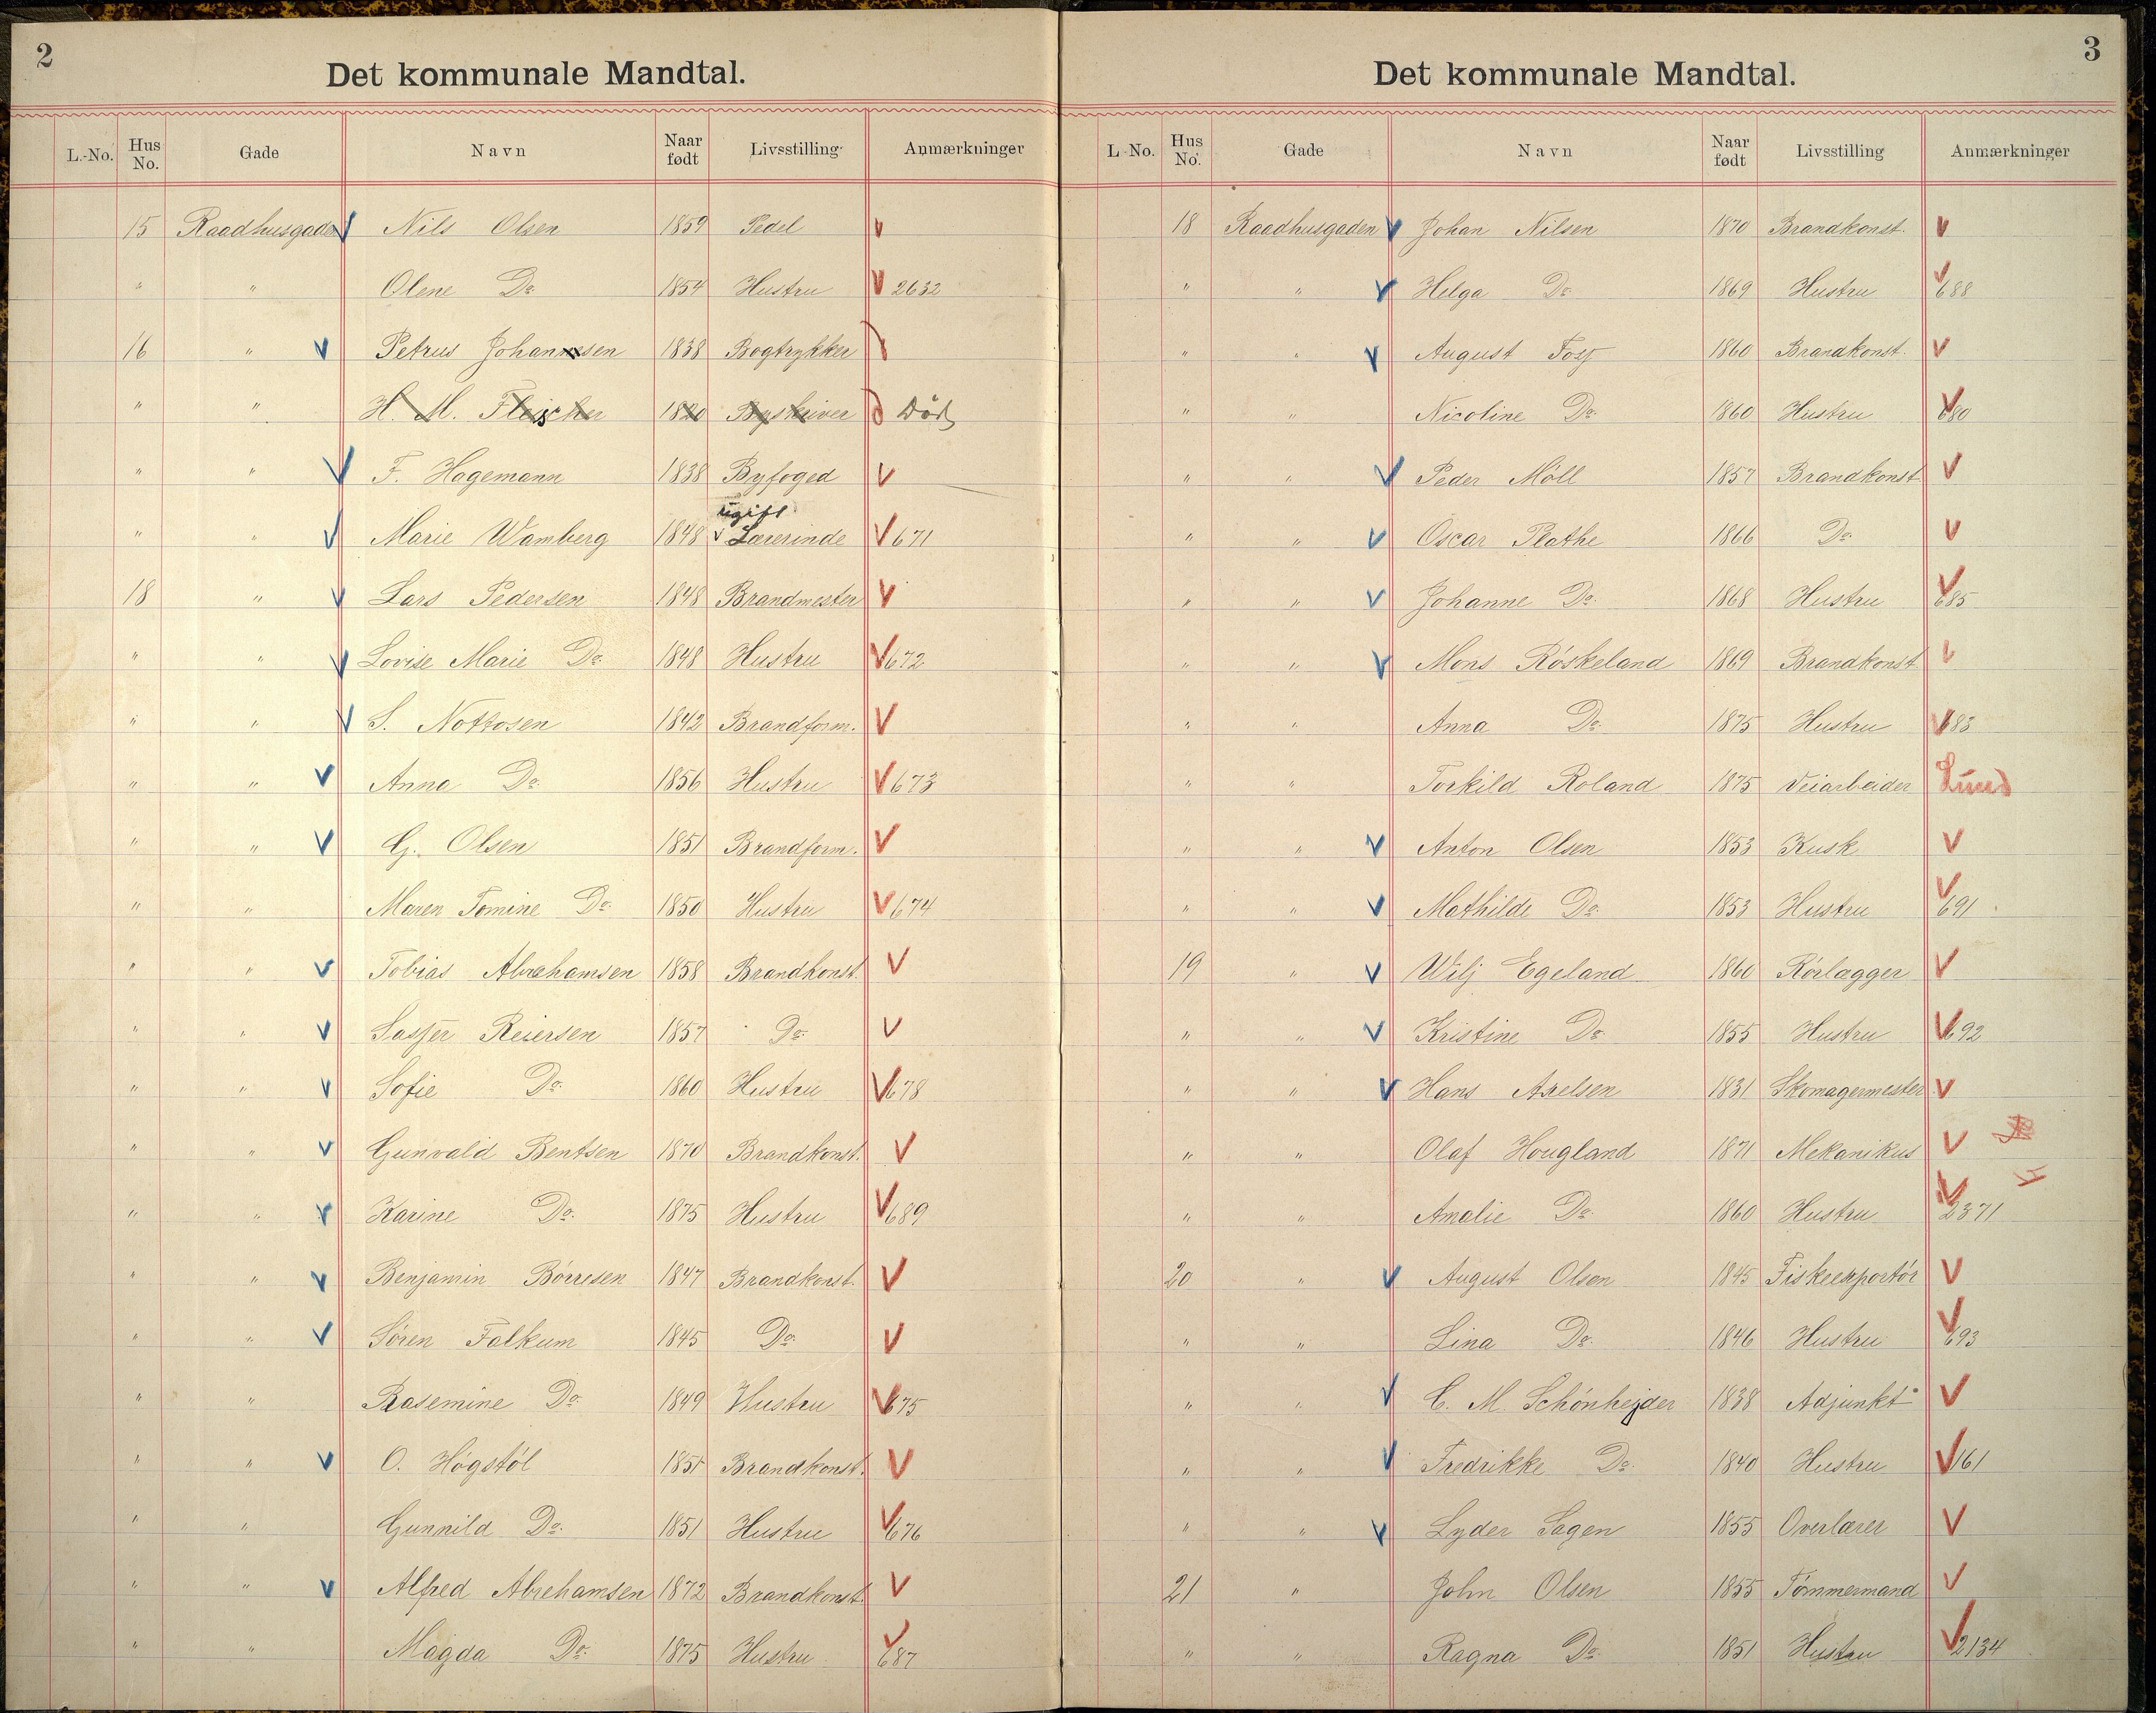 2
Det kommunale Mandtal.
L.-No. Hus No. Gade Navn Naar født Livsstilling Anmærkninger
15 Raadhusgaden Nils Olsen 1859 Pedel
" " Olene Do 1854 Hustru 2632
16 " Petrus Johannesen 1838 Bogtrykker
" " H. M. Fleischer 1820 Byskriver Død
" " F. Hagemann 1838 Byfoged
ugift
" " Marie Wamberg 1848 Lærerinde 671
18 " Lars Pedersen 1848 Brandmester
" " Lovise Marie Do 1848 Hustru 672
" " S. Nottosen 1842 Brandform.
" " Anna Do 1856 Hustru 673
" " G. Olsen 1851 Brandform.
" " Maren Tomine Do 1850 Hustru 674
" " Tobias Abrahamsen 1858 Brandkonst.
" " Reiersen 1857 Do
" " Sofie Do 1860 Hustru 678
" " Gunvald Bentsen 1870 Brandkonst.
" " Karine Do 1875 Hustru 689
" " Benjamin Børresen 1847 Brandkonst.
" " Søren Falkum 1845 Do
" " Rasemine Do 1849 Hustru 675
" " O. Høgstøl 1851 Brandkonst.
" " Gunnild Do 1851 Hustru 676
" " Alfred Abrehamsen 1872 Brandkonst.
" " Magda Do 1875 Hustru 687
3
Det kommunale Mandtal.
L-No. Hus No. Gade Navn Naar født Livsstilling Anmærkninger
18 Raadhusgaden Johan Nilsen 1870 Brandkonst.
" " Helga Do 1869 Hustru 688
" " August 1860 Brandkonst.
" " Nicoline Do 1860 Hustru 680
" " Peder Møll 1857 Brandkonst
" " Oscar Plathe 1866 Do
" " Johanne Do 1868 Hustru 685
" " Mons Røskeland 1869 Brandkonst
" " Anna Do 1875 Hustru 683
" " Torkild Roland 1875 Veiarbeider Lund
" " Anton Olsen 1853 Kusk
" " Mathilde Do 1853 Hustru 691
19 " Wilj Egeland 1860 Rørlægger
" " Kristine Do 1855 Hustru 692
" " Hans Axelsen 1831 Skomagermester
" " Olaf Hougland 1871 Mekanikus
" " Amalie Do 1860 Hustru 2371
20 " August Olsen 1845 Fiskeexportør
" " Lina Do 1846 Hustru 693
" " C. M. Schønhejder 1838 Adjunkt
" " Fredrikke Do 1840 Hustru 161
" " Lyder Sagen 1855 Overlærer
21 " John Olsen 1855 Tømmermand
" " Ragna Do 1851 Hustru 2134